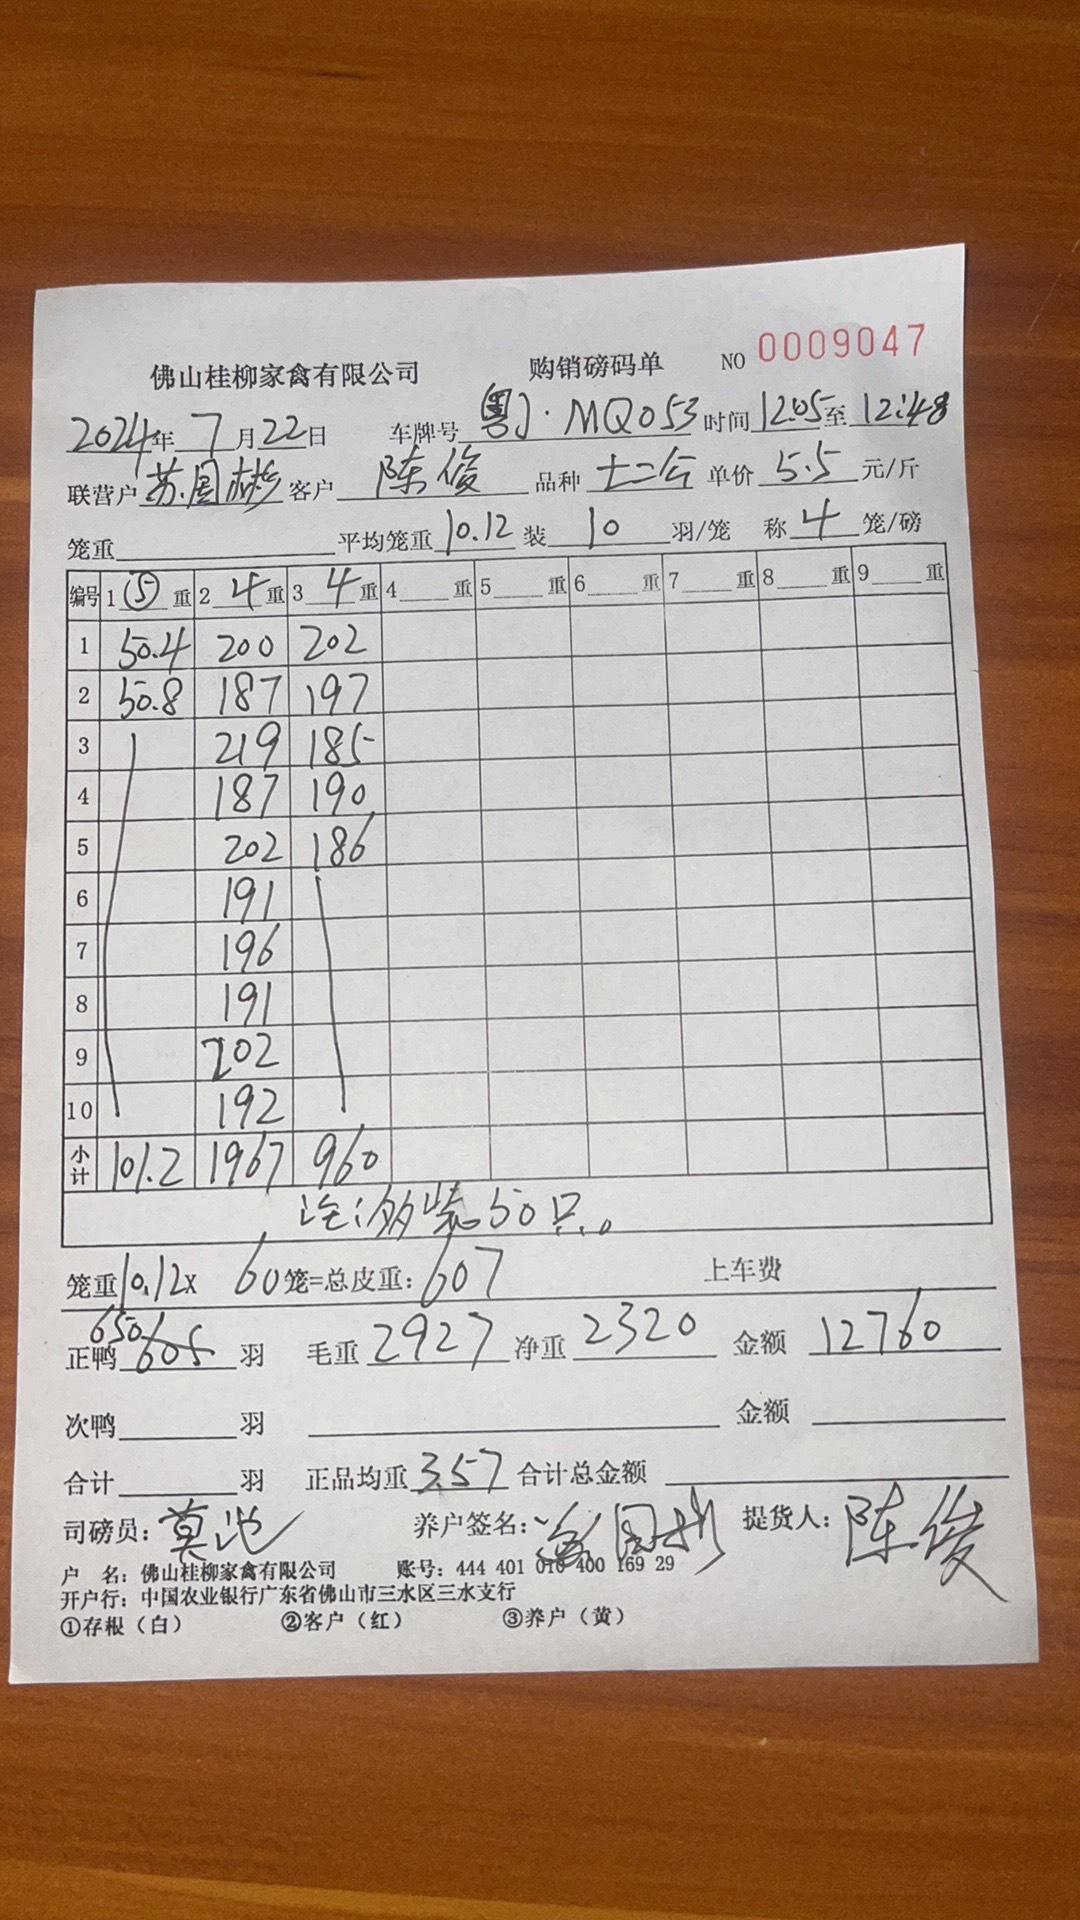 佛山桂柳家禽有限公司 购销磅码单 NO 0009047
2024年 7月22日 车牌号 粤J·MQ053 时间 12:05至 12:48
联营户 苏国彬 客户 陈俊 品种 十二公 单价 5.5 元/斤
笼重 平均笼重 10.12 装 10 羽/笼 称 4 笼/磅
编号 1 ⑤ 重 2 4 重 3 4 重 4 重 5 重 6 重 7 重 8 重 9 重
1 50.4 200 202
2 50.8 187 197
3 219 185
4 187 190
5 202 186
6 191
7 196
8 191
9 202
10 192
小计 101.2 1967 960
注:多装50只。
笼重10.12x 60笼=总皮重: 607 上车费
正鸭 650 羽 毛重 2927 净重 2320 金额 12760
次鸭 羽 金额
合计 羽 正品均重 3.57 合计总金额
司磅员: 养户签名: 提货人: 陈俊
户 名: 佛山桂柳家禽有限公司 账号: 444 401 010 400 169 29
开户行: 中国农业银行广东省佛山市三水区三水支行
①存根(白) ②客户(红) ③养户(黄)